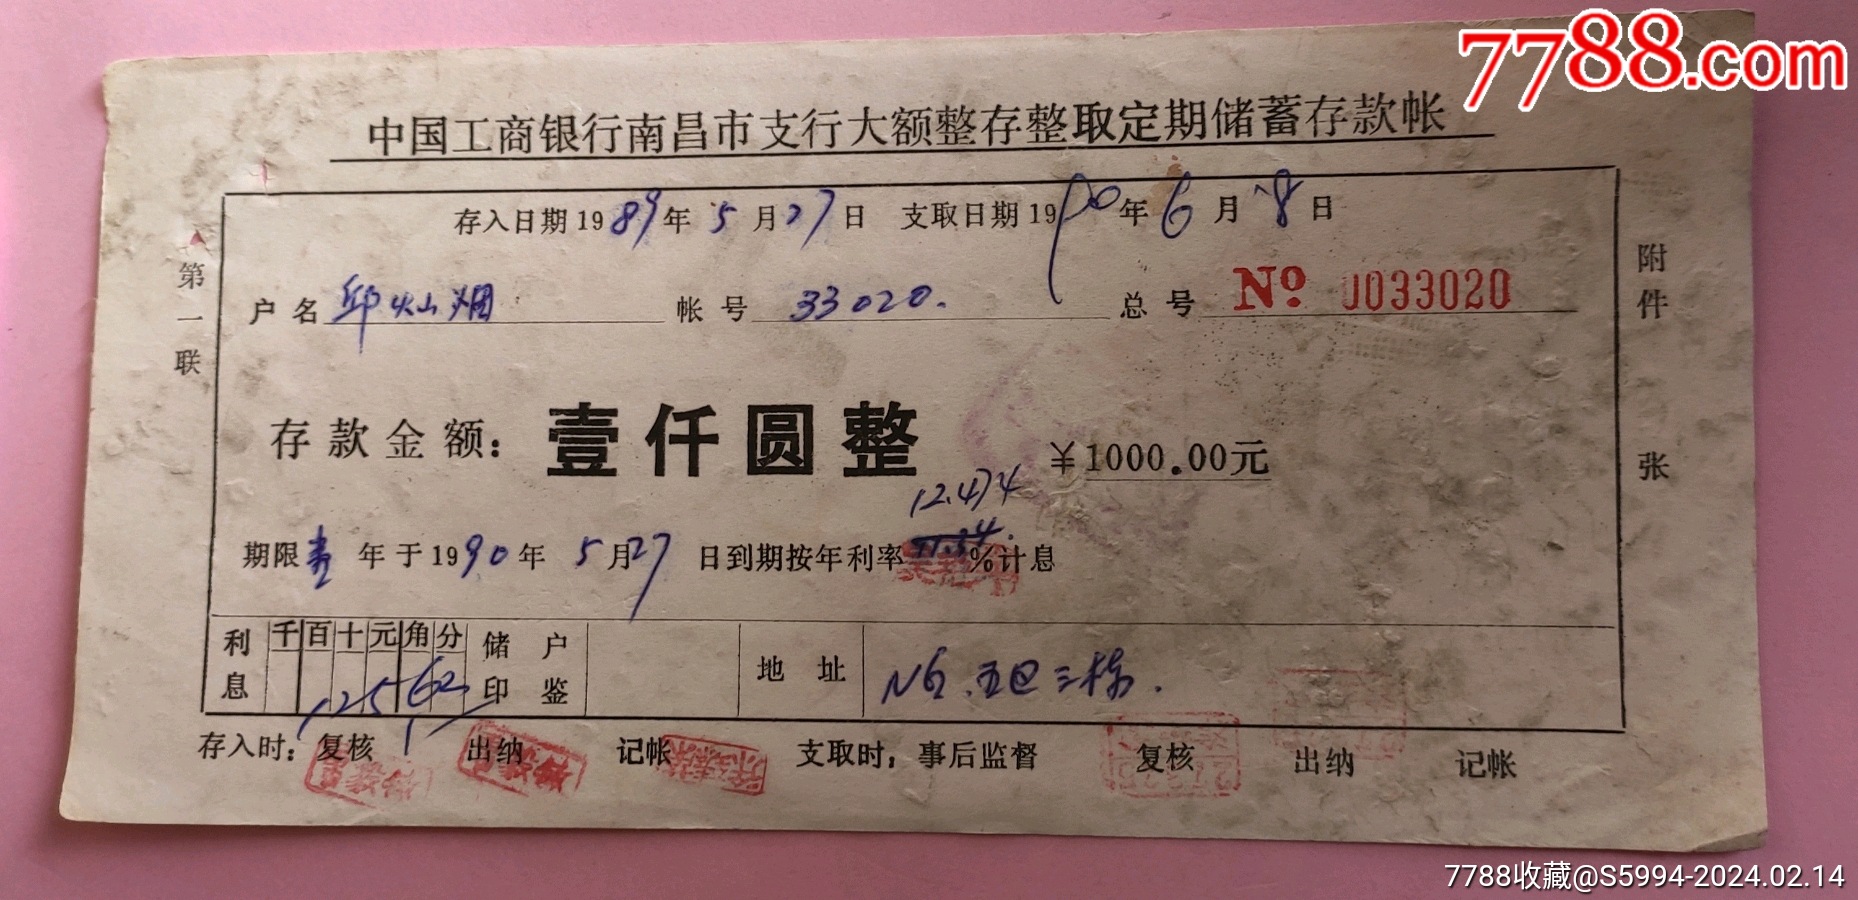 7788.com
中国工商银行南昌市支行大额整存整取定期储蓄存款帐
存入日期 1989年 5月27日 支取日期 1990年 6月 8日
第一联
户名 邱灿烟 帐号 33020. 总号 № 0033020
附件 张
存款金额：壹仟圆整 ￥1000.00元
12.474
期限 壹 年于 1990年 5月27日到期按年利率 11.34 %计息
利息 千百十元角分 125 62 储户印鉴 地址 N6.
存入时：复核 出纳 记帐 支取时：事后监督 复核 出纳 记帐
7788收藏@S5994-2024.02.14